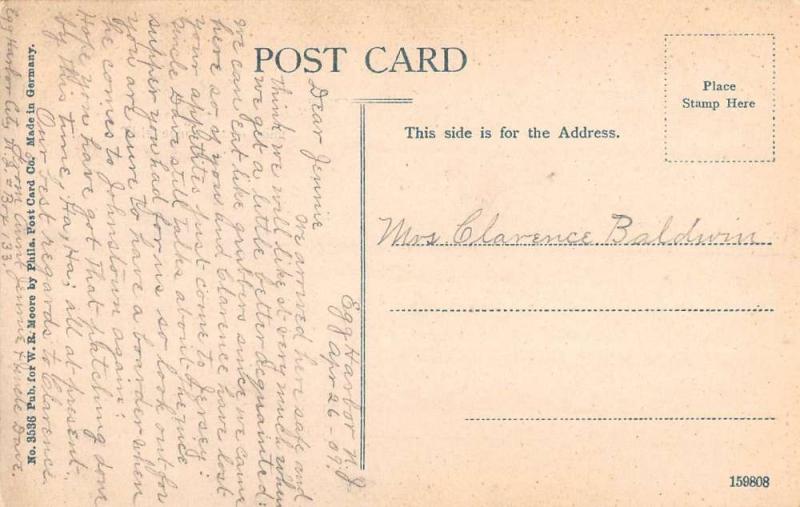 POST CARD
Place
Stamp Here
This side is for the Address.
Mrs. Clarence Baldwin
159808
No. 3536 Pub. for W. R. Moore by Phila. Post Card Co. Made in Germany.
Egg Harbor N.J
Apr 26-09.
Dear Jennie
we arrived here safe and
think we will like it very much when
we get a little better acquainted:
we can eat like grubbers since we came
here so if you and Clarence have lost
your appatites just come to Jersey:
Uncle Dave still talks about the nice
supper you had for us so look out for
you are sure to have a boarder when
he comes to Johnstown again:
Hope you have got that patching done
by this time, Ha, Ha; all at present.
Our best regards to Clarence
From Aunt Jennie & Uncle Dave.
Egg Harbor City N.J. = Box 133